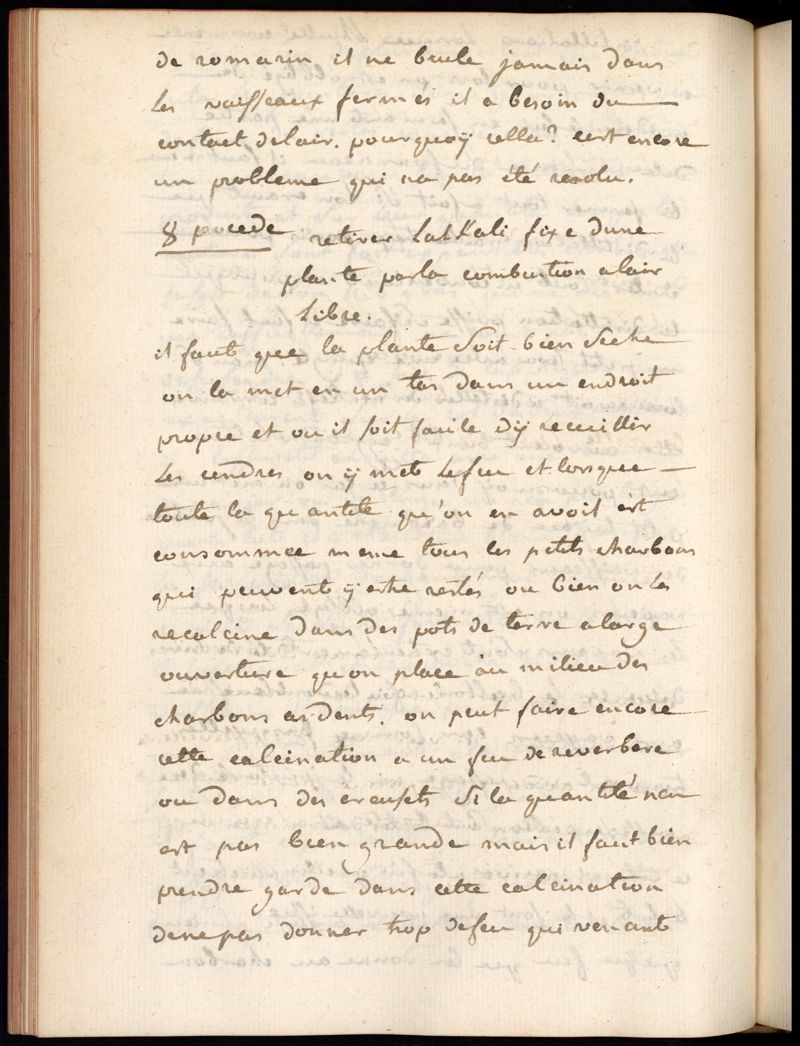 de romarin il ne brule jamais dans
les vaisseaux fermés il a besoin du
contact delair. pourquoÿ cella? cert encore
un probleme qui na pas été resolu.
8 procede retirer Lalkali fixe dune
plante parla combustion alair
Libre.
il faut que la plante soit bien seche
on la met en un tas dans un endroit
propre et ou il soit facile dÿ recueillir
les cendres on ÿ met lefeu et lorsque
toute la quantité qu'on en avoit est
consommee meme tous les petits charbons
qui peuvent ÿ estre restés ou bien on les
recalcine dans des pots de terre alarge
ouverture quon place au milieu des
charbons ardents. on peut faire encore
cette calcination a un feu de reverbere
ou dans des creusets si la quantité nen
est pas bien grande mais il faut bien
prendre garde dans cette calcination
denepas donner trop defeu qui venant